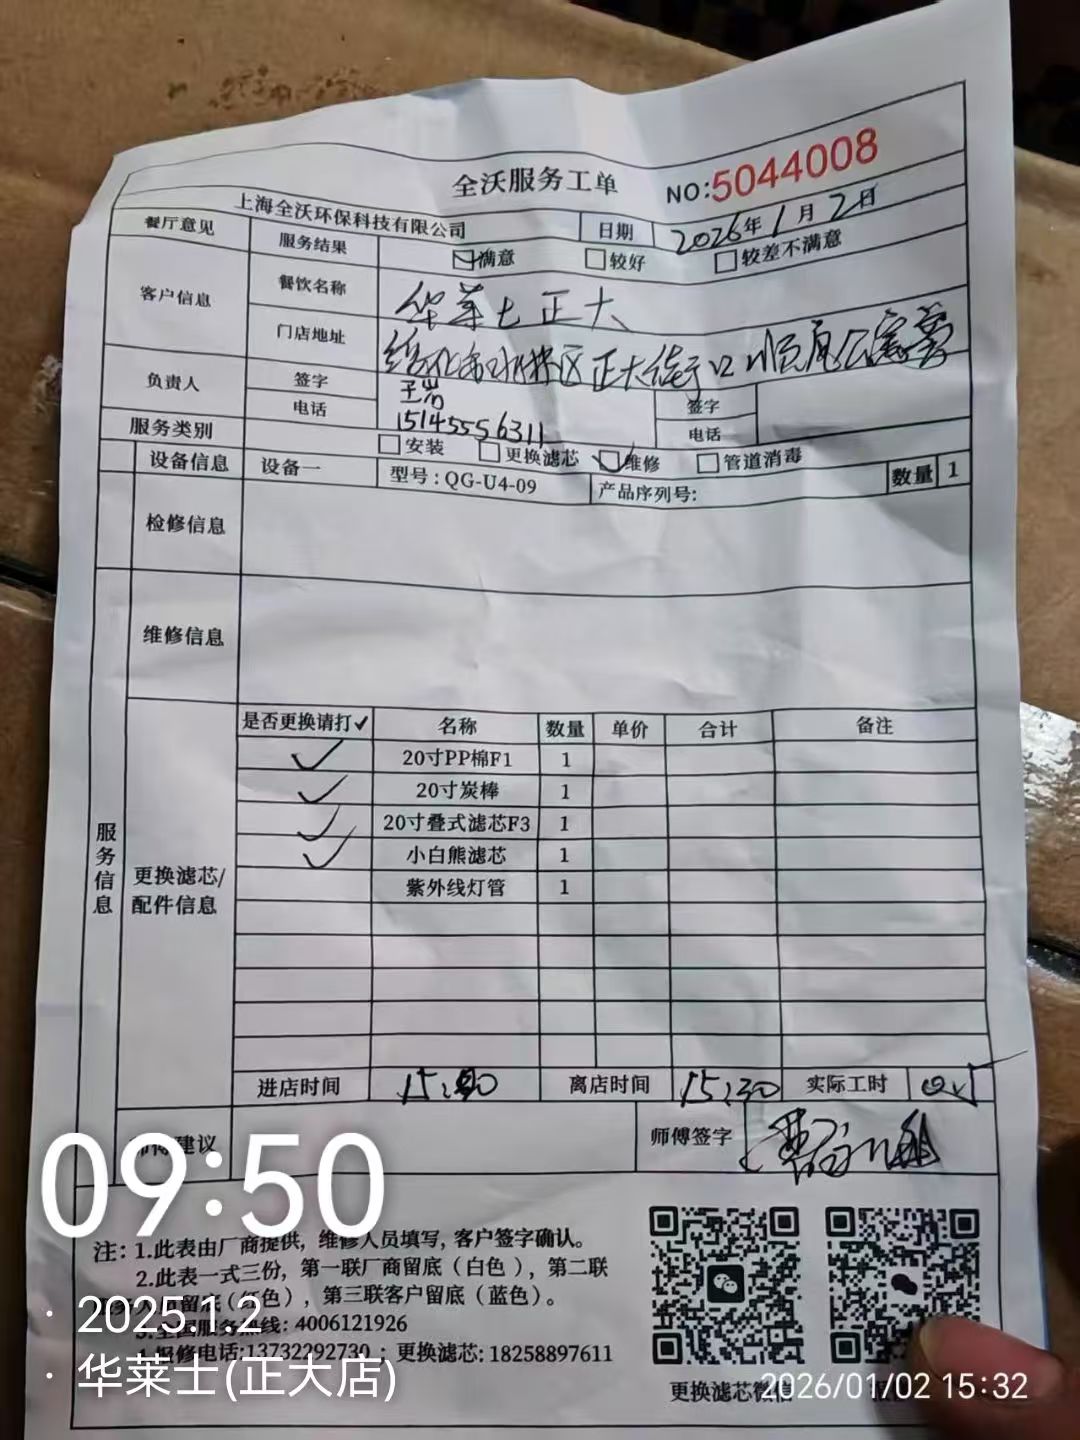 全沃服务工单 NO:5044008
上海全沃环保科技有限公司 日期 2026年1月2日
餐厅意见 服务结果 满意 较好 较差不满意
客户信息 餐饮名称 华莱士正大
门店地址 绥化市北林区正大街
负责人 签字 签字
电话 15145556311 电话
服务类别 安装 更换滤芯 维修 管道消毒
设备信息 设备一 型号:QG-U4-09 产品序列号: 数量 1
检修信息
维修信息
服务信息
更换滤芯/
配件信息
是否更换请打✓ 名称 数量 单价 合计 备注
✓ 20寸PP棉F1 1
✓ 20寸炭棒 1
✓ 20寸叠式滤芯F3 1
✓ 小白熊滤芯 1
紫外线灯管 1
进店时间 离店时间 15:30 实际工时 0.5
建议 师傅签字
09:50
注: 1.此表由厂商提供, 维修人员填写, 客户签字确认。
2.此表一式三份, 第一联厂商留底(白色), 第二联
留底(红色), 第三联客户留底(蓝色)。
· 2025.1.2
3.全国服务热线: 4006121926
报修电话:13732292730 ; 更换滤芯: 18258897611
· 华莱士(正大店)
更换滤芯微信
2026/01/02 15:32